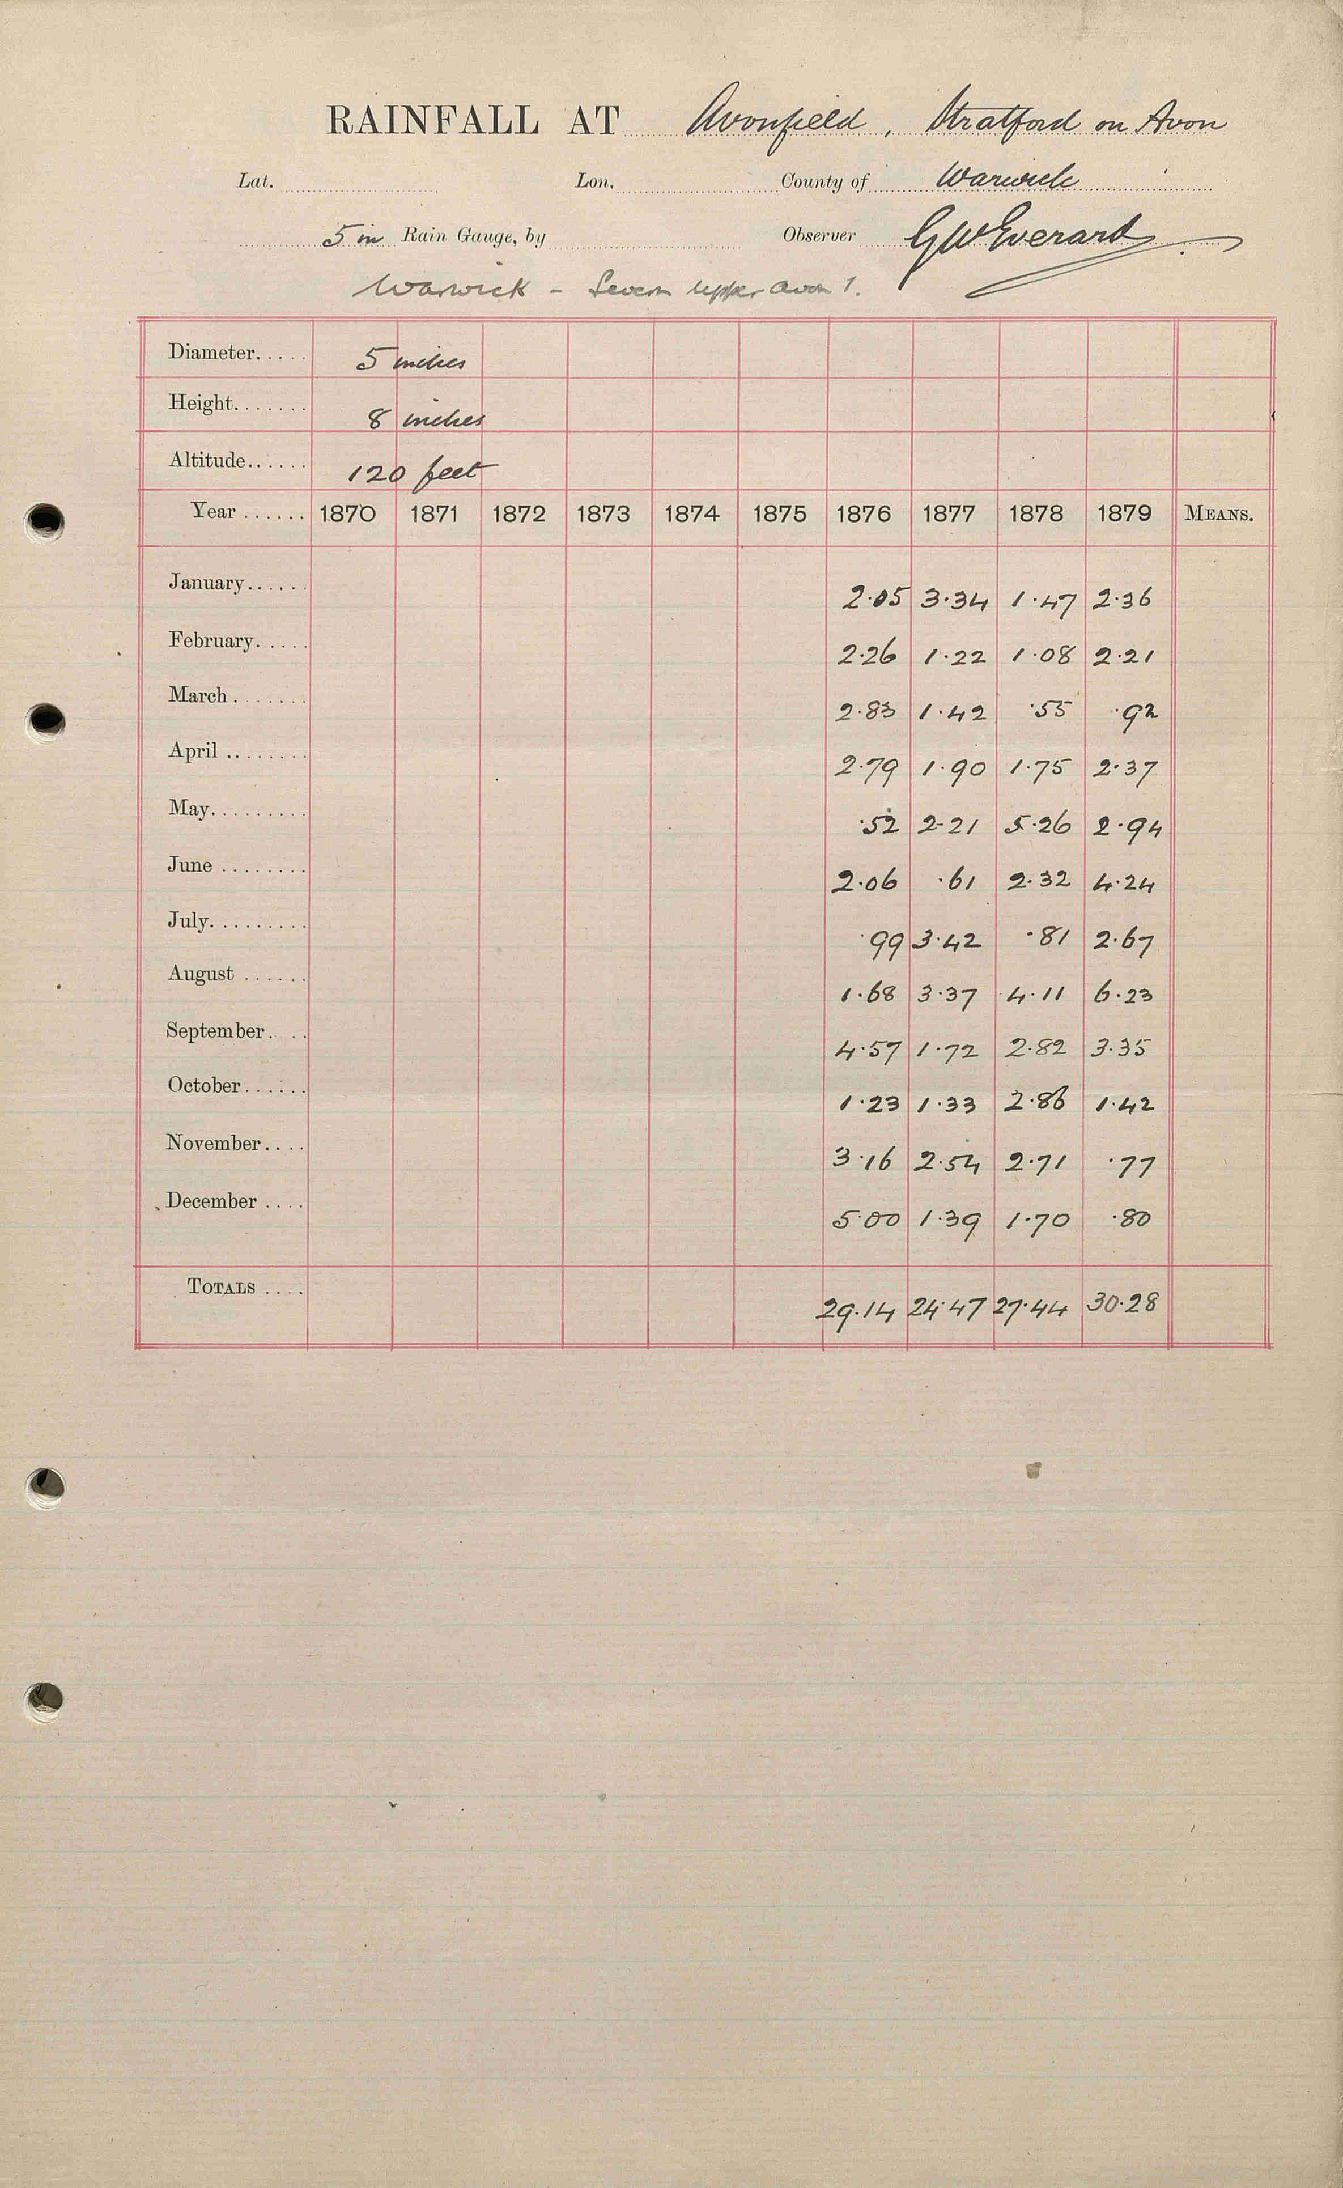 RAINFALL AT Avonfield, Stratford on Avon
Lat. Lon. County of Warwick
5 in Rain Gauge, by Observer GW Everard
Warwick - Severn upper avon 1.
Diameter..... 5 inches
Height....... 8 inches
Altitude...... 120 feet
Year ...... 1870 1871 1872 1873 1874 1875 1876 1877 1878 1879 MEANS.
January...... 2.05 3.34 1.47 2.36
February..... 2.26 1.22 1.08 2.21
March ....... 2.83 1.42 .55 .92
April ........ 2.79 1.90 1.75 2.37
May......... .52 2.21 5.26 2.94
June ........ 2.06 .61 2.32 4.24
July......... .99 3.42 .81 2.67
August ...... 1.68 3.37 4.11 6.23
September.... 4.57 1.72 2.82 3.35
October...... 1.23 1.33 2.86 1.42
November.... 3.16 2.54 2.71 .77
December .... 5.00 1.39 1.70 .80
TOTALS .... 29.14 24.47 27.44 30.28